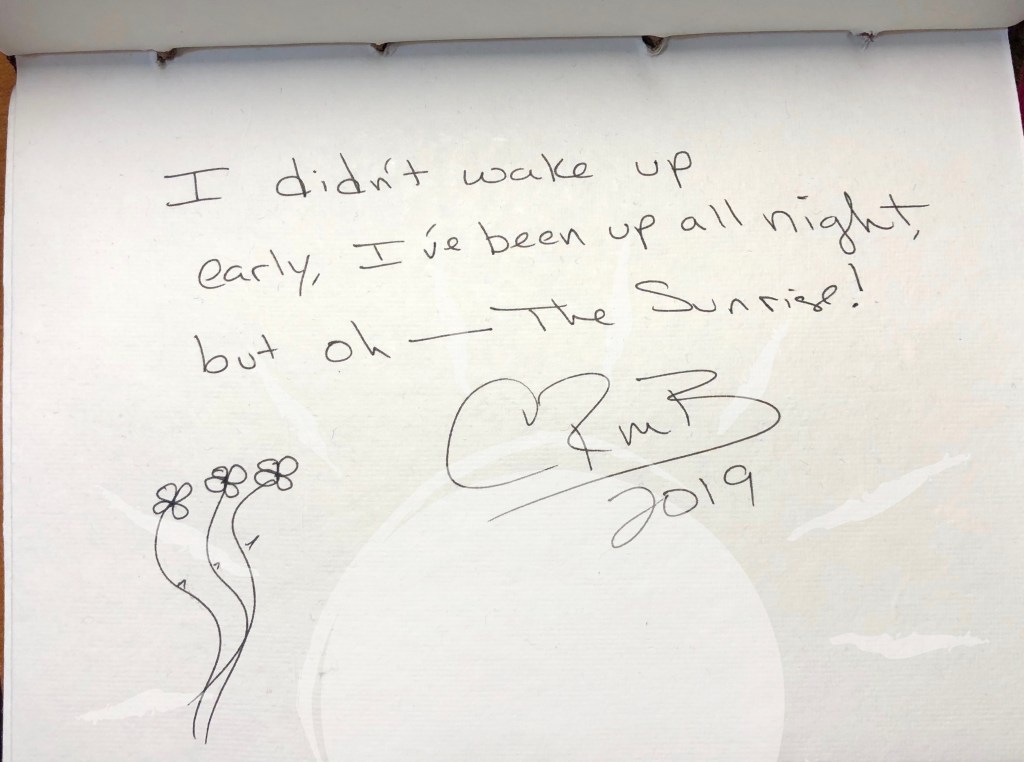 I didn't wake up
early, I've been up all night,
but oh — The Sunrise!
CRmB
2019